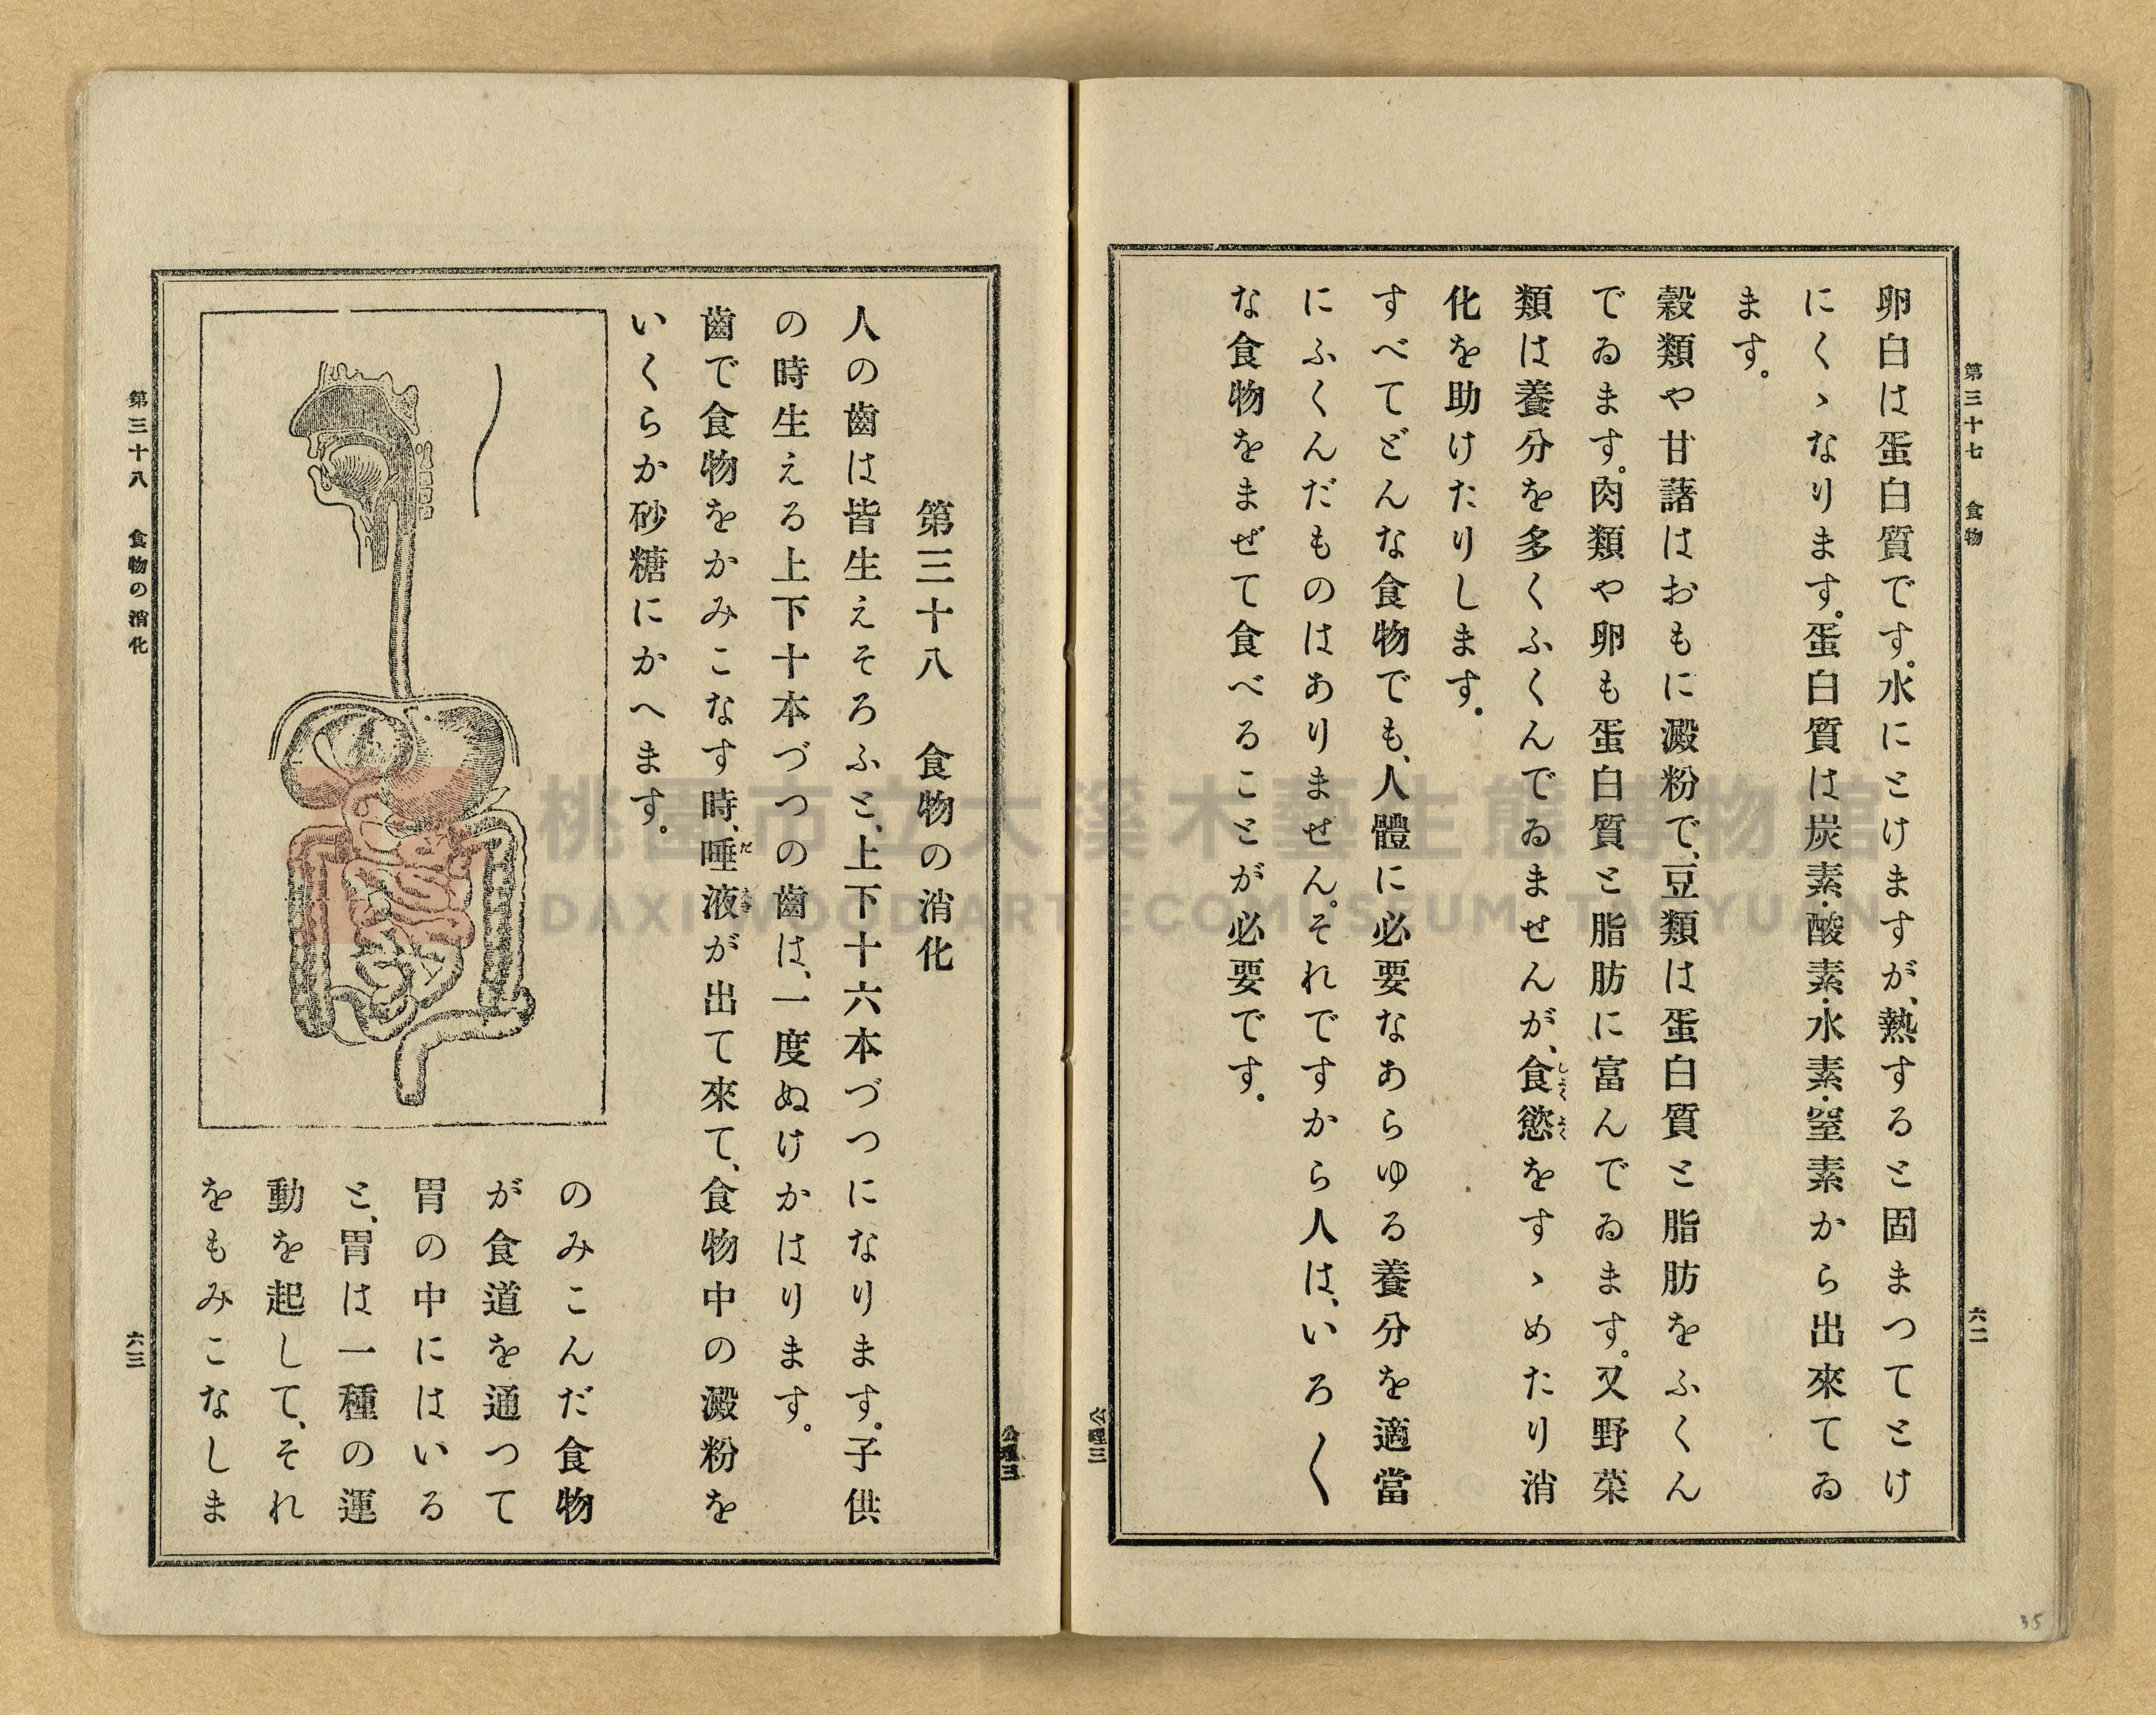 第三十七　食物
六二
卵白は蛋白質です。水にとけますが、熱すると固まつてとけ
にくゝなります。蛋白質は炭素・酸素・水素・窒素から出來てゐ
ます。
穀類や甘藷はおもに澱粉で、豆類は蛋白質と脂肪をふくん
でゐます。肉類や卵も蛋白質と脂肪に富んでゐます。又野菜
類は養分を多くふくんでゐませんが、食慾をすゝめたり消
しよくよく
化を助けたりします。
すべてどんな食物でも、人體に必要なあらゆる養分を適當
にふくんだものはありません。それですから人は、いろ〱
な食物をまぜて食べることが必要です。
公理三
公理三
第三十八　食物の消化
人の齒は皆生えそろふと、上下十六本づつになります。子供
の時生える上下十本づつの齒は、一度ぬけかはります。
齒で食物をかみこなす時、唾液が出て來て、食物中の澱粉を
いくらか砂糖にかへます。
のみこんだ食物
が食道を通つて
胃の中にはいる
と、胃は一種の運
動を起して、それ
をもみこなしま
第三十八　食物の消化
六三
桃園市立大溪木藝生態博物館
DAXI WOOD ART ECOMUSEUM, TAOYUAN
35